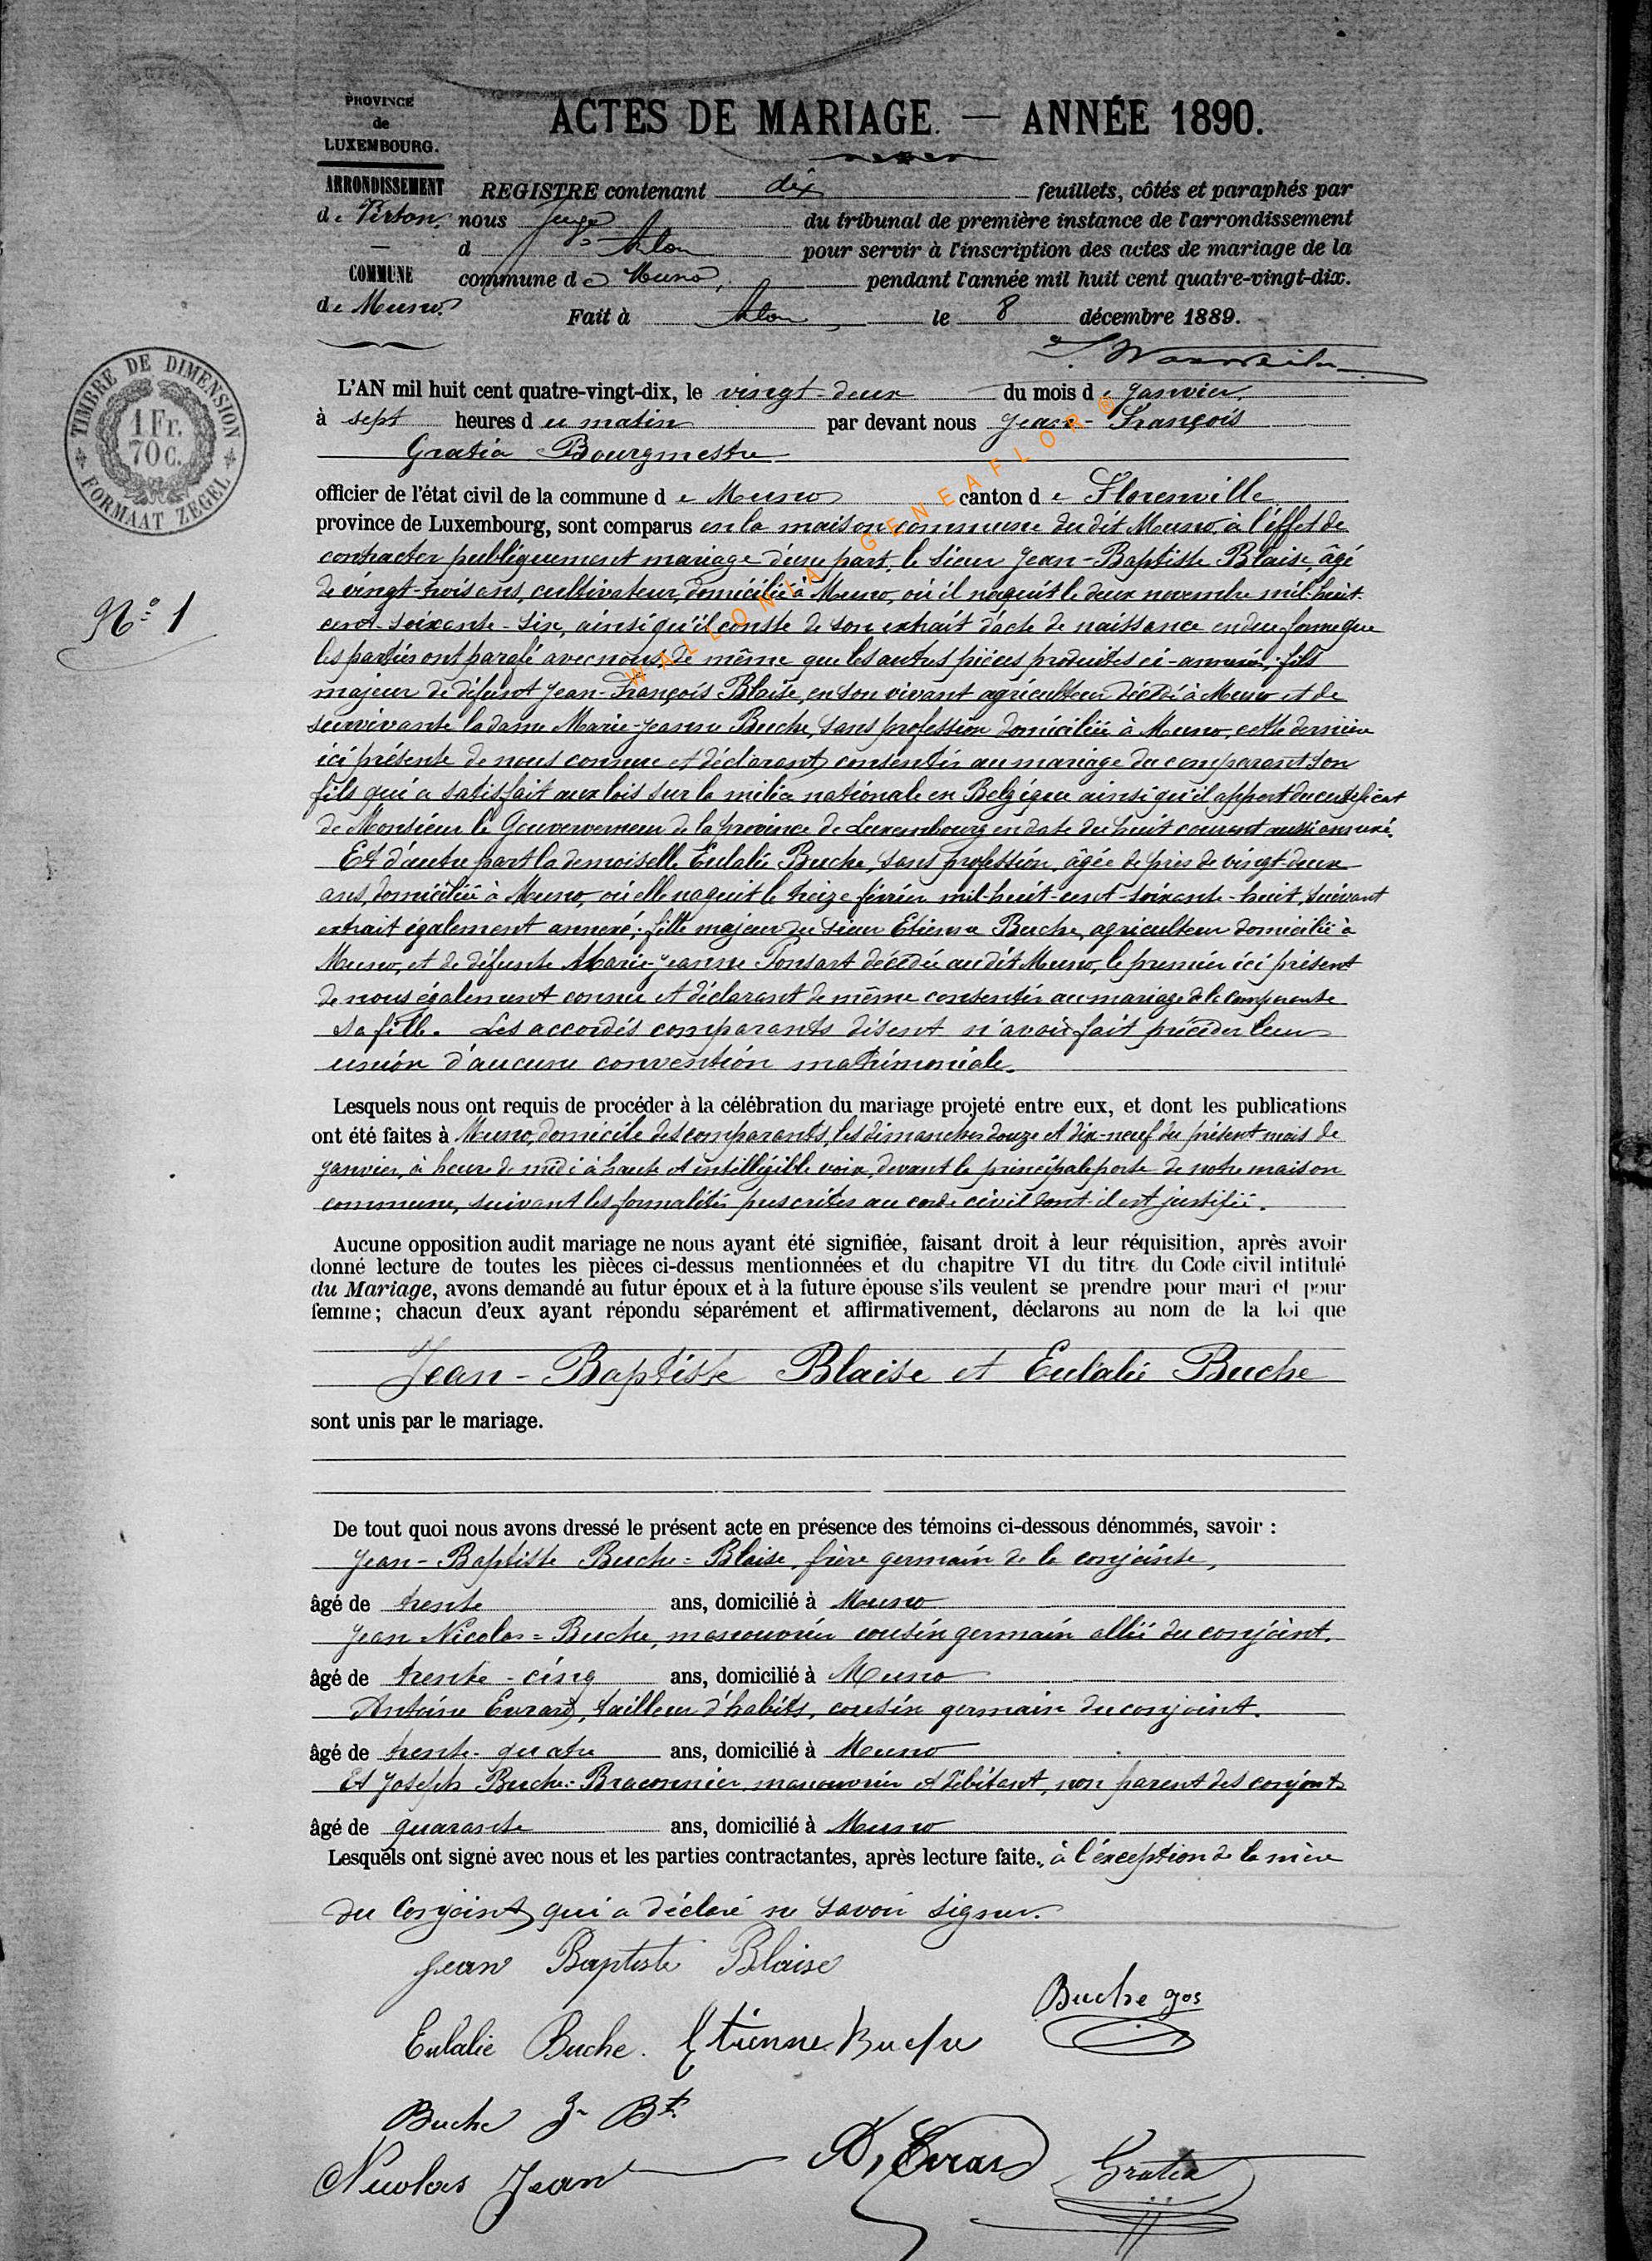 PROVINCE
de
LUXEMBOURG.
ARRONDISSEMENT
de Virton.
COMMUNE
de Muno.
ACTES DE MARIAGE. — ANNÉE 1890.
REGISTRE contenant dix feuillets, côtés et paraphés par
nous Juge du tribunal de première instance de l'arrondissement
d'Arlon pour servir à l'inscription des actes de mariage de la
commune de Muno, pendant l'année mil huit cent quatre-vingt-dix.
Fait à Arlon, le 8 décembre 1889.
TIMBRE DE DIMENSION
1 Fr.
70 c.
FORMAAT ZEGEL
No. 1
L'AN mil huit cent quatre-vingt-dix, le vingt-deux du mois de Janvier.
à sept heures du matin par devant nous Jean-François
Gratia Bourgmestre
officier de l'état civil de la commune de Muno canton de Florenville
province de Luxembourg, sont comparus en la maison commune dudit Muno, à l'effet de
contracter publiquement mariage d'une part, le sieur Jean-Baptiste Blaise, âgé
de vingt-trois ans, cultivateur, domicilié à Muno, où il naquit le deux novembre mil-huit-
cent-soixante-six, ainsi qu'il conste de son extrait d'acte de naissance en due forme que
les parties ont parafé avec nous, de même que les autres pièces produites ci-annexées; fils
majeur de défunt Jean-François Blaise, en son vivant agriculteur décédé à Muno et de
survivante la dame Marie-Jeanne Buche, sans profession domiciliée à Muno, cette dernière
ici présente de nous connue et déclarant consentir au mariage du comparant son
fils qui a satisfait aux lois sur la milice nationale en Belgique ainsi qu'il appert du certificat
de Monsieur le Gouverneur de la province de Luxembourg en date du huit courant aussi annexé.
Et d'autre part la demoiselle Eulalie Buche, sans profession, âgée de près de vingt-deux
ans, domiciliée à Muno, où elle naquit le treize février mil-huit-cent-soixante-huit, suivant
extrait également annexé; fille majeure du sieur Etienne Buche, agriculteur domicilié à
Muno, et de défunte Marie-Jeanne Ponsart décédée audit Muno, le premier ici présent
de nous également connu et déclarant de même consentir au mariage de la comparante
sa fille. Les accordés comparants disent n'avoir fait précéder leur
union d'aucune convention matrimoniale.
Lesquels nous ont requis de procéder à la célébration du mariage projeté entre eux, et dont les publications
ont été faites à Muno, domicile des comparants, les dimanches douze et dix-neuf du présent mois de
Janvier, à heure de midi à haute et intelligible voix, devant la principale porte de notre maison
commune, suivant les formalités prescrites au code civil dont il est justifié.
Aucune opposition audit mariage ne nous ayant été signifiée, faisant droit à leur réquisition, après avoir
donné lecture de toutes les pièces ci-dessus mentionnées et du chapitre VI du titre du Code civil intitulé
du Mariage, avons demandé au futur époux et à la future épouse s'ils veulent se prendre pour mari et pour
femme; chacun d'eux ayant répondu séparément et affirmativement, déclarons au nom de la loi que
Jean-Baptiste Blaise et Eulalie Buche
sont unis par le mariage.
De tout quoi nous avons dressé le présent acte en présence des témoins ci-dessous dénommés, savoir :
Jean-Baptiste Buche=Blaise, frère germain de la conjointe,
âgé de trente ans, domicilié à Muno
Jean Nicolas=Buche, manouvrier cousin germain allié du conjoint.
âgé de trente-cinq ans, domicilié à Muno
Antoine Evrard, tailleur d'habits, cousin germain du conjoint.
âgé de trente-quatre ans, domicilié à Muno
Et Joseph Buche=Braconnier, manouvrier et débitant, non parent des conjoints
âgé de quarante ans, domicilié à Muno
Lesquels ont signé avec nous et les parties contractantes, après lecture faite, à l'exception de la mère
du conjoint qui a déclaré ne savoir signer.
Jean Baptiste Blaise
Buche Jos
Eulalie Buche. Etienne Buche
Buche J. Bte.
Nicolas Jean A, Evrard Gratia
WALLONIA GENEAFLOR ®